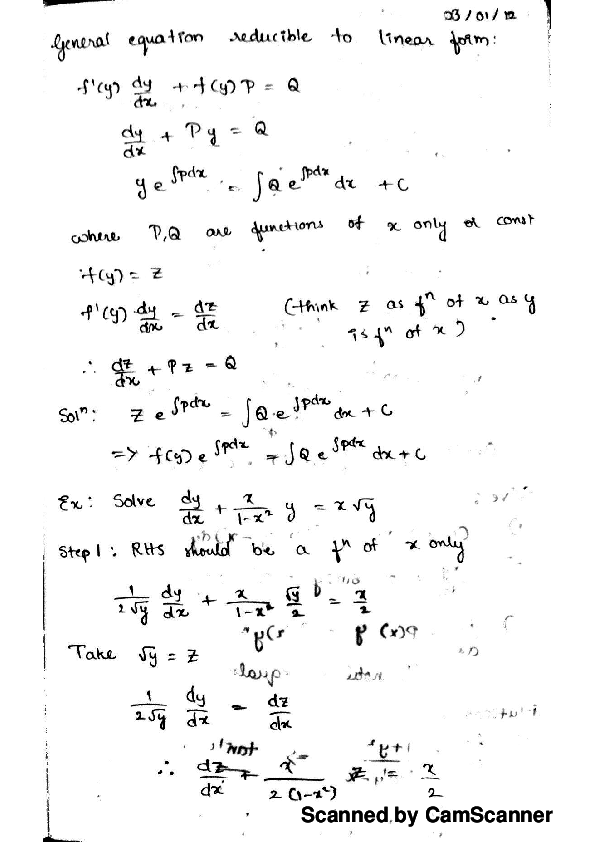 03/01/12
General equation reducible to linear form:
f'(y) dy/dx + f(y) P = Q
dy/dx + Py = Q
y e^∫pdx = ∫Q e^∫pdx dx + C
where P,Q are functions of x only or const
f(y) = z
f'(y) dy/dx = dz/dx (think z as fⁿ of x as y
is fⁿ of x)
∴ dz/dx + Pz = Q
Solⁿ: z e^∫pdx = ∫Q.e^∫pdx dx + C
=> f(y) e^∫pdx = ∫Q e^∫pdx dx + C
Ex: Solve dy/dx + x/(1-x²) y = x√y
Step 1: RHS should be a fⁿ of x only
1/(2√y) dy/dx + x/(1-x²) √y/2 = x/2
Take √y = z
1/(2√y) dy/dx = dz/dx
∴ dz/dx + x/(2(1-x²)) z = x/2
Scanned by CamScanner